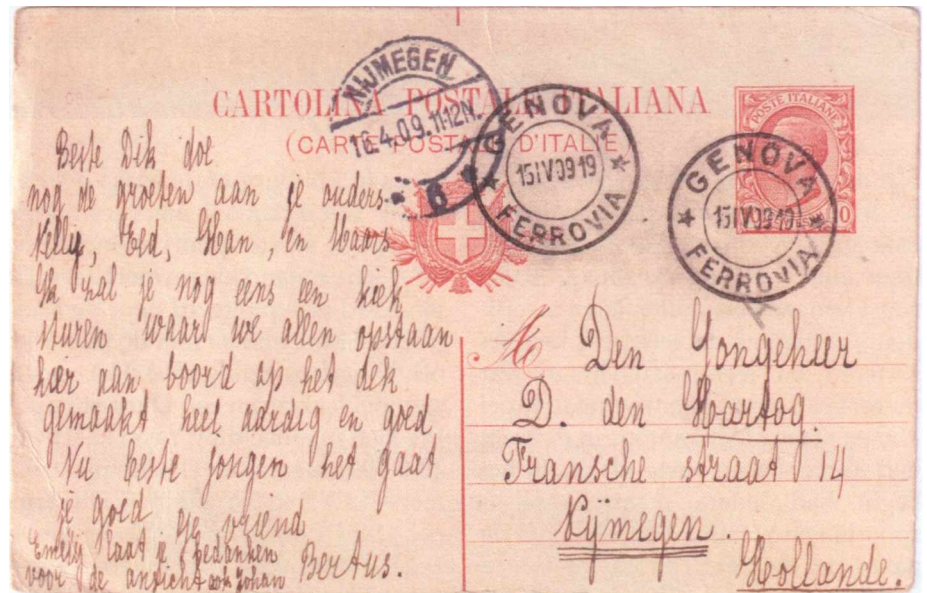 CARTOLINA POSTALE ITALIANA
(CARTE POSTALE D'ITALIE
NIJMEGEN
16.4.09.11-12N.
6
GENOVA
15 IV 09 19
FERROVIA
POSTE ITALIANE
GENOVA
15 IV 09 19
FERROVIA
Beste Dik doe
nog de groeten aan je ouders
Nelly, Eed, Han, en
Ik zal je nog eens een kiek
sturen waar we allen opstaan
hier aan boord op het dek
gemaakt heel aardig en goed
Nu beste jongen het gaat
je goed je vriend
Bertus.
laat je bedanken
voor de ansicht Johan
M
Den Jongeheer
D. den Hartog.
Fransche straat 14
Nijmegen.
Hollande.